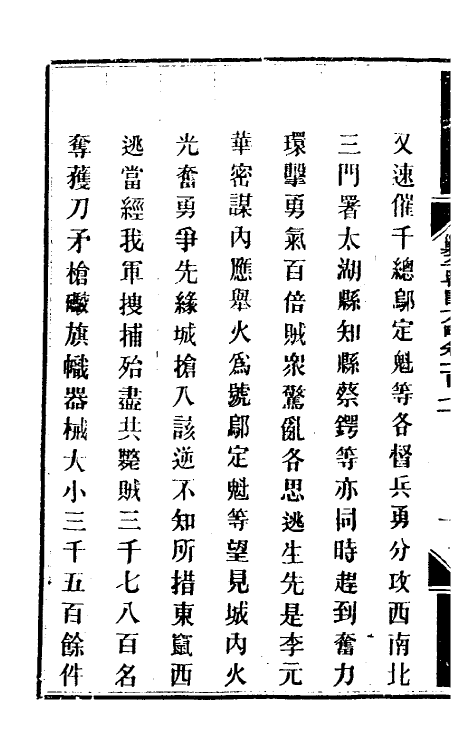 又速催千總鄔定魁等各督兵勇分攻西南北
三門署太湖縣知縣蔡鍔等亦同時趕到奮力
環擊勇氣百倍賊衆驚亂各思逃生先是李元
華密謀內應舉火爲號鄔定魁等望見城內火
光奮勇爭先緣城搶入該逆不知所措東竄西
逃當經我軍搜捕殆盡共斃賊三千七八百名
奪獲刀矛槍礮旗幟器械大小三千五百餘件